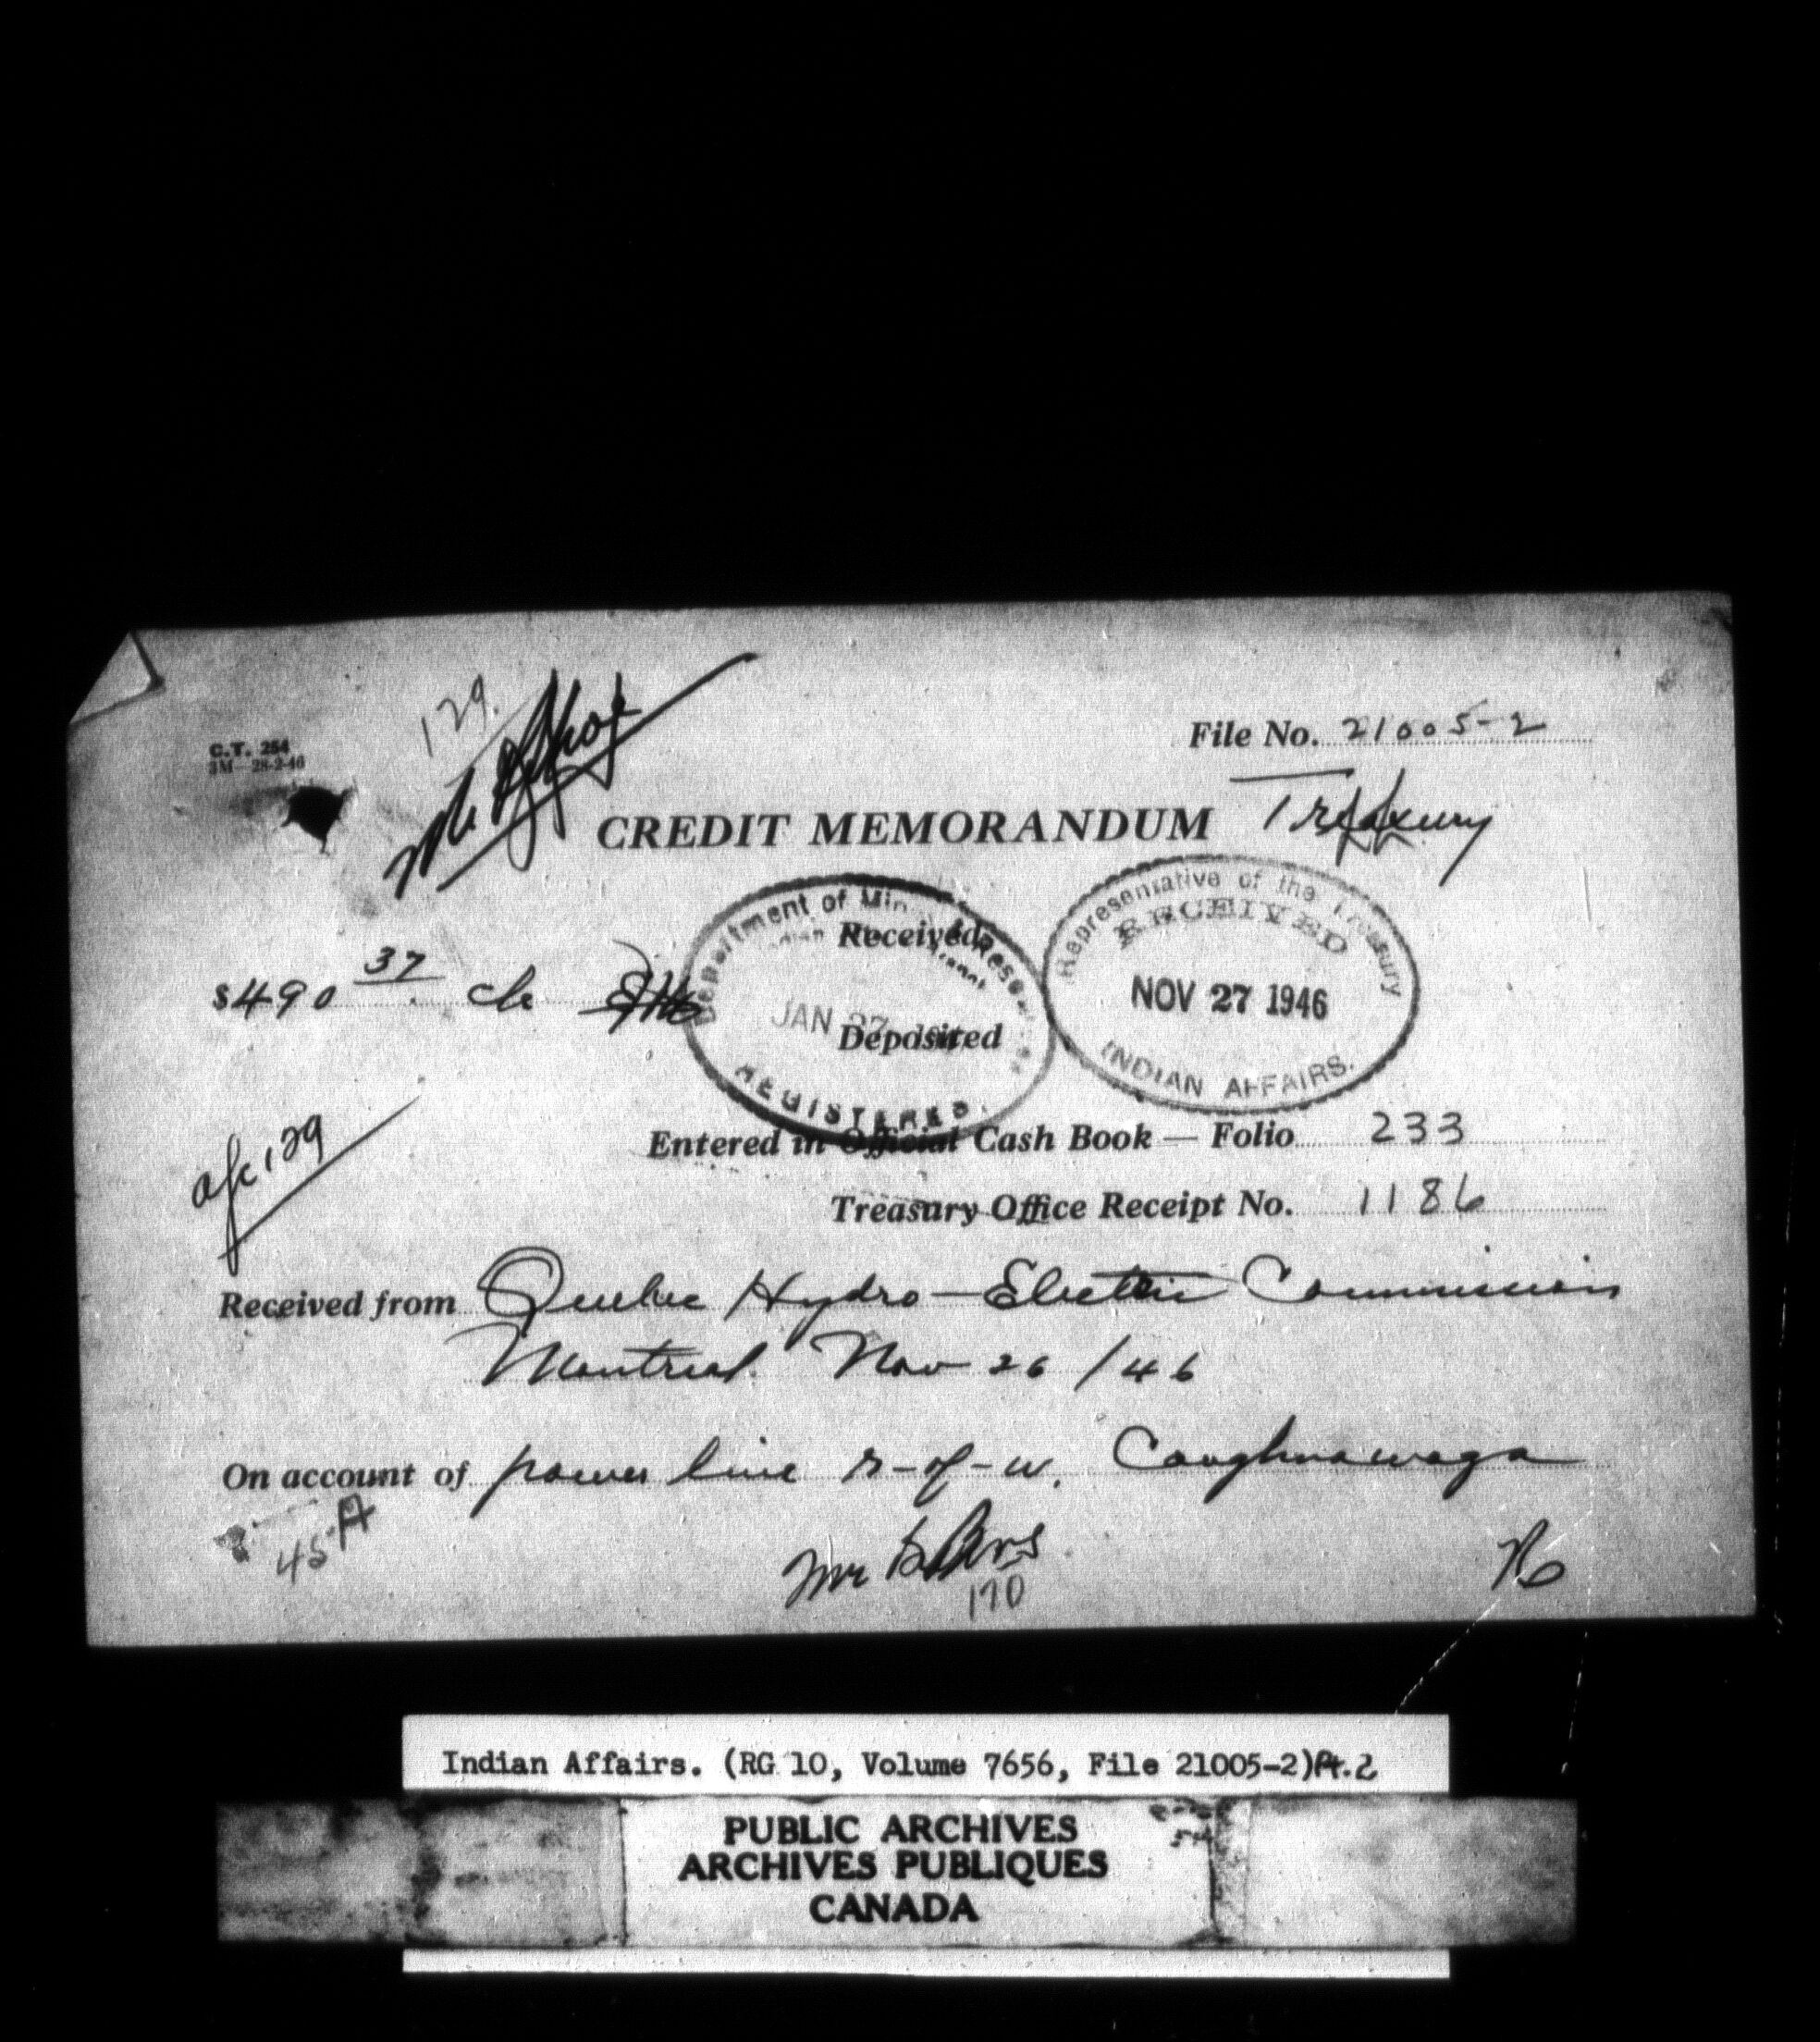 129.
C.T. 254
3M—28-2-46
File No. 21005-2
CREDIT MEMORANDUM
Treasury
Department of Min
Received
REGISTERED.
JAN 27
Deposited
Representative of the Treasury
RECEIVED
NOV 27 1946
INDIAN AFFAIRS.
$490 37
a/c 129
Entered in Official Cash Book — Folio 233
Treasury Office Receipt No. 1186
Received from Quebec Hydro-Electric Commission
Montreal Nov 26/46
On account of power line r-of-w. Caughnawaga
45 A
170
Indian Affairs. (RG 10, Volume 7656, File 21005-2)Pt.2
PUBLIC ARCHIVES
ARCHIVES PUBLIQUES
CANADA